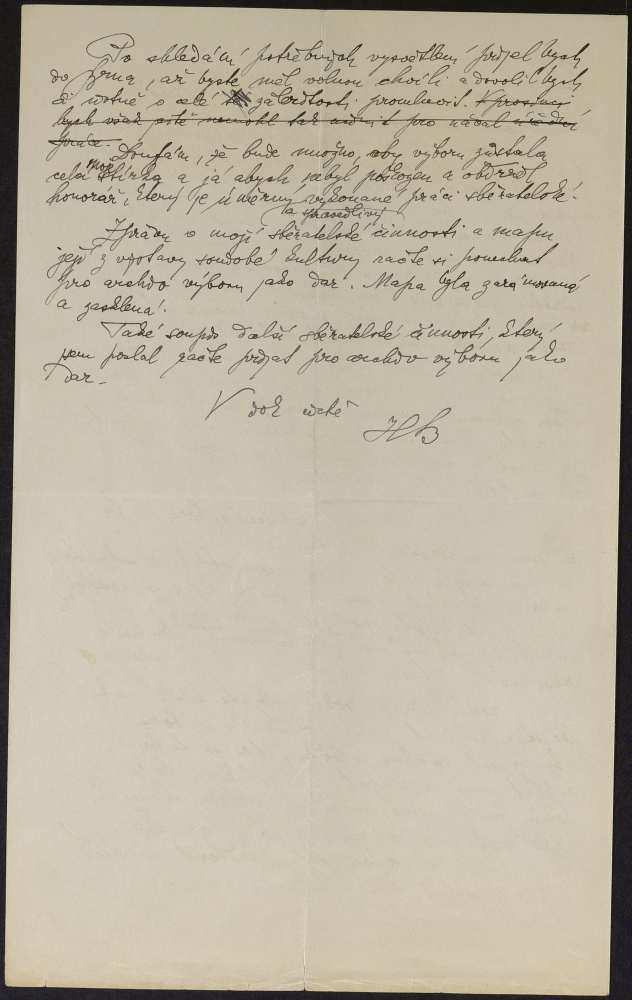 Po shledání potřebných vysvětlení přijel bych
do Brna, až byste měl volnou chvíli a dovolil bych
si ústně o celé záležitosti promluvit. V prosinci
bych však ještě nemohl tak učinit pro nával úřední
práce.
Doufám, že bude možno, aby výboru zůstala
celá moje sbírka a já abych nebyl poškozen a obdržel
honorář, který je úměrný vykonané práci sběratelské.
a spravedlivý
Zprávu o mojí sběratelské činnosti a mapu
její z výstavy soudobé kultury račte si ponechat
pro archiv výboru jako dar. Mapa byla zarámovaná
a zasklená.
Také soupis další sběratelské činnosti, který
jsem poslal račte přijat pro archiv výboru jako
dar.
V dok. úctě
HB